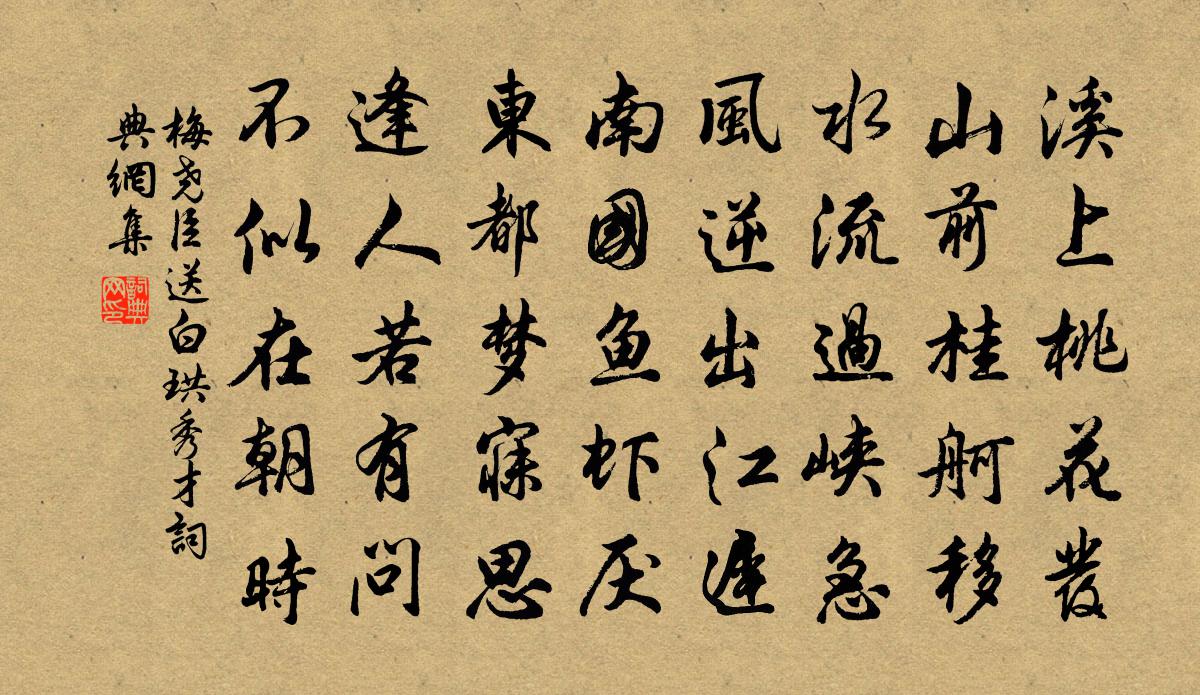 溪上桃花發
山前桂舸移
水流過峽急
風逆出江遲
南國鱼虾厌
東都梦寐思
逢人若有問
不似在朝時
梅尧臣送白珙秀才詞
典網集
詞典網印